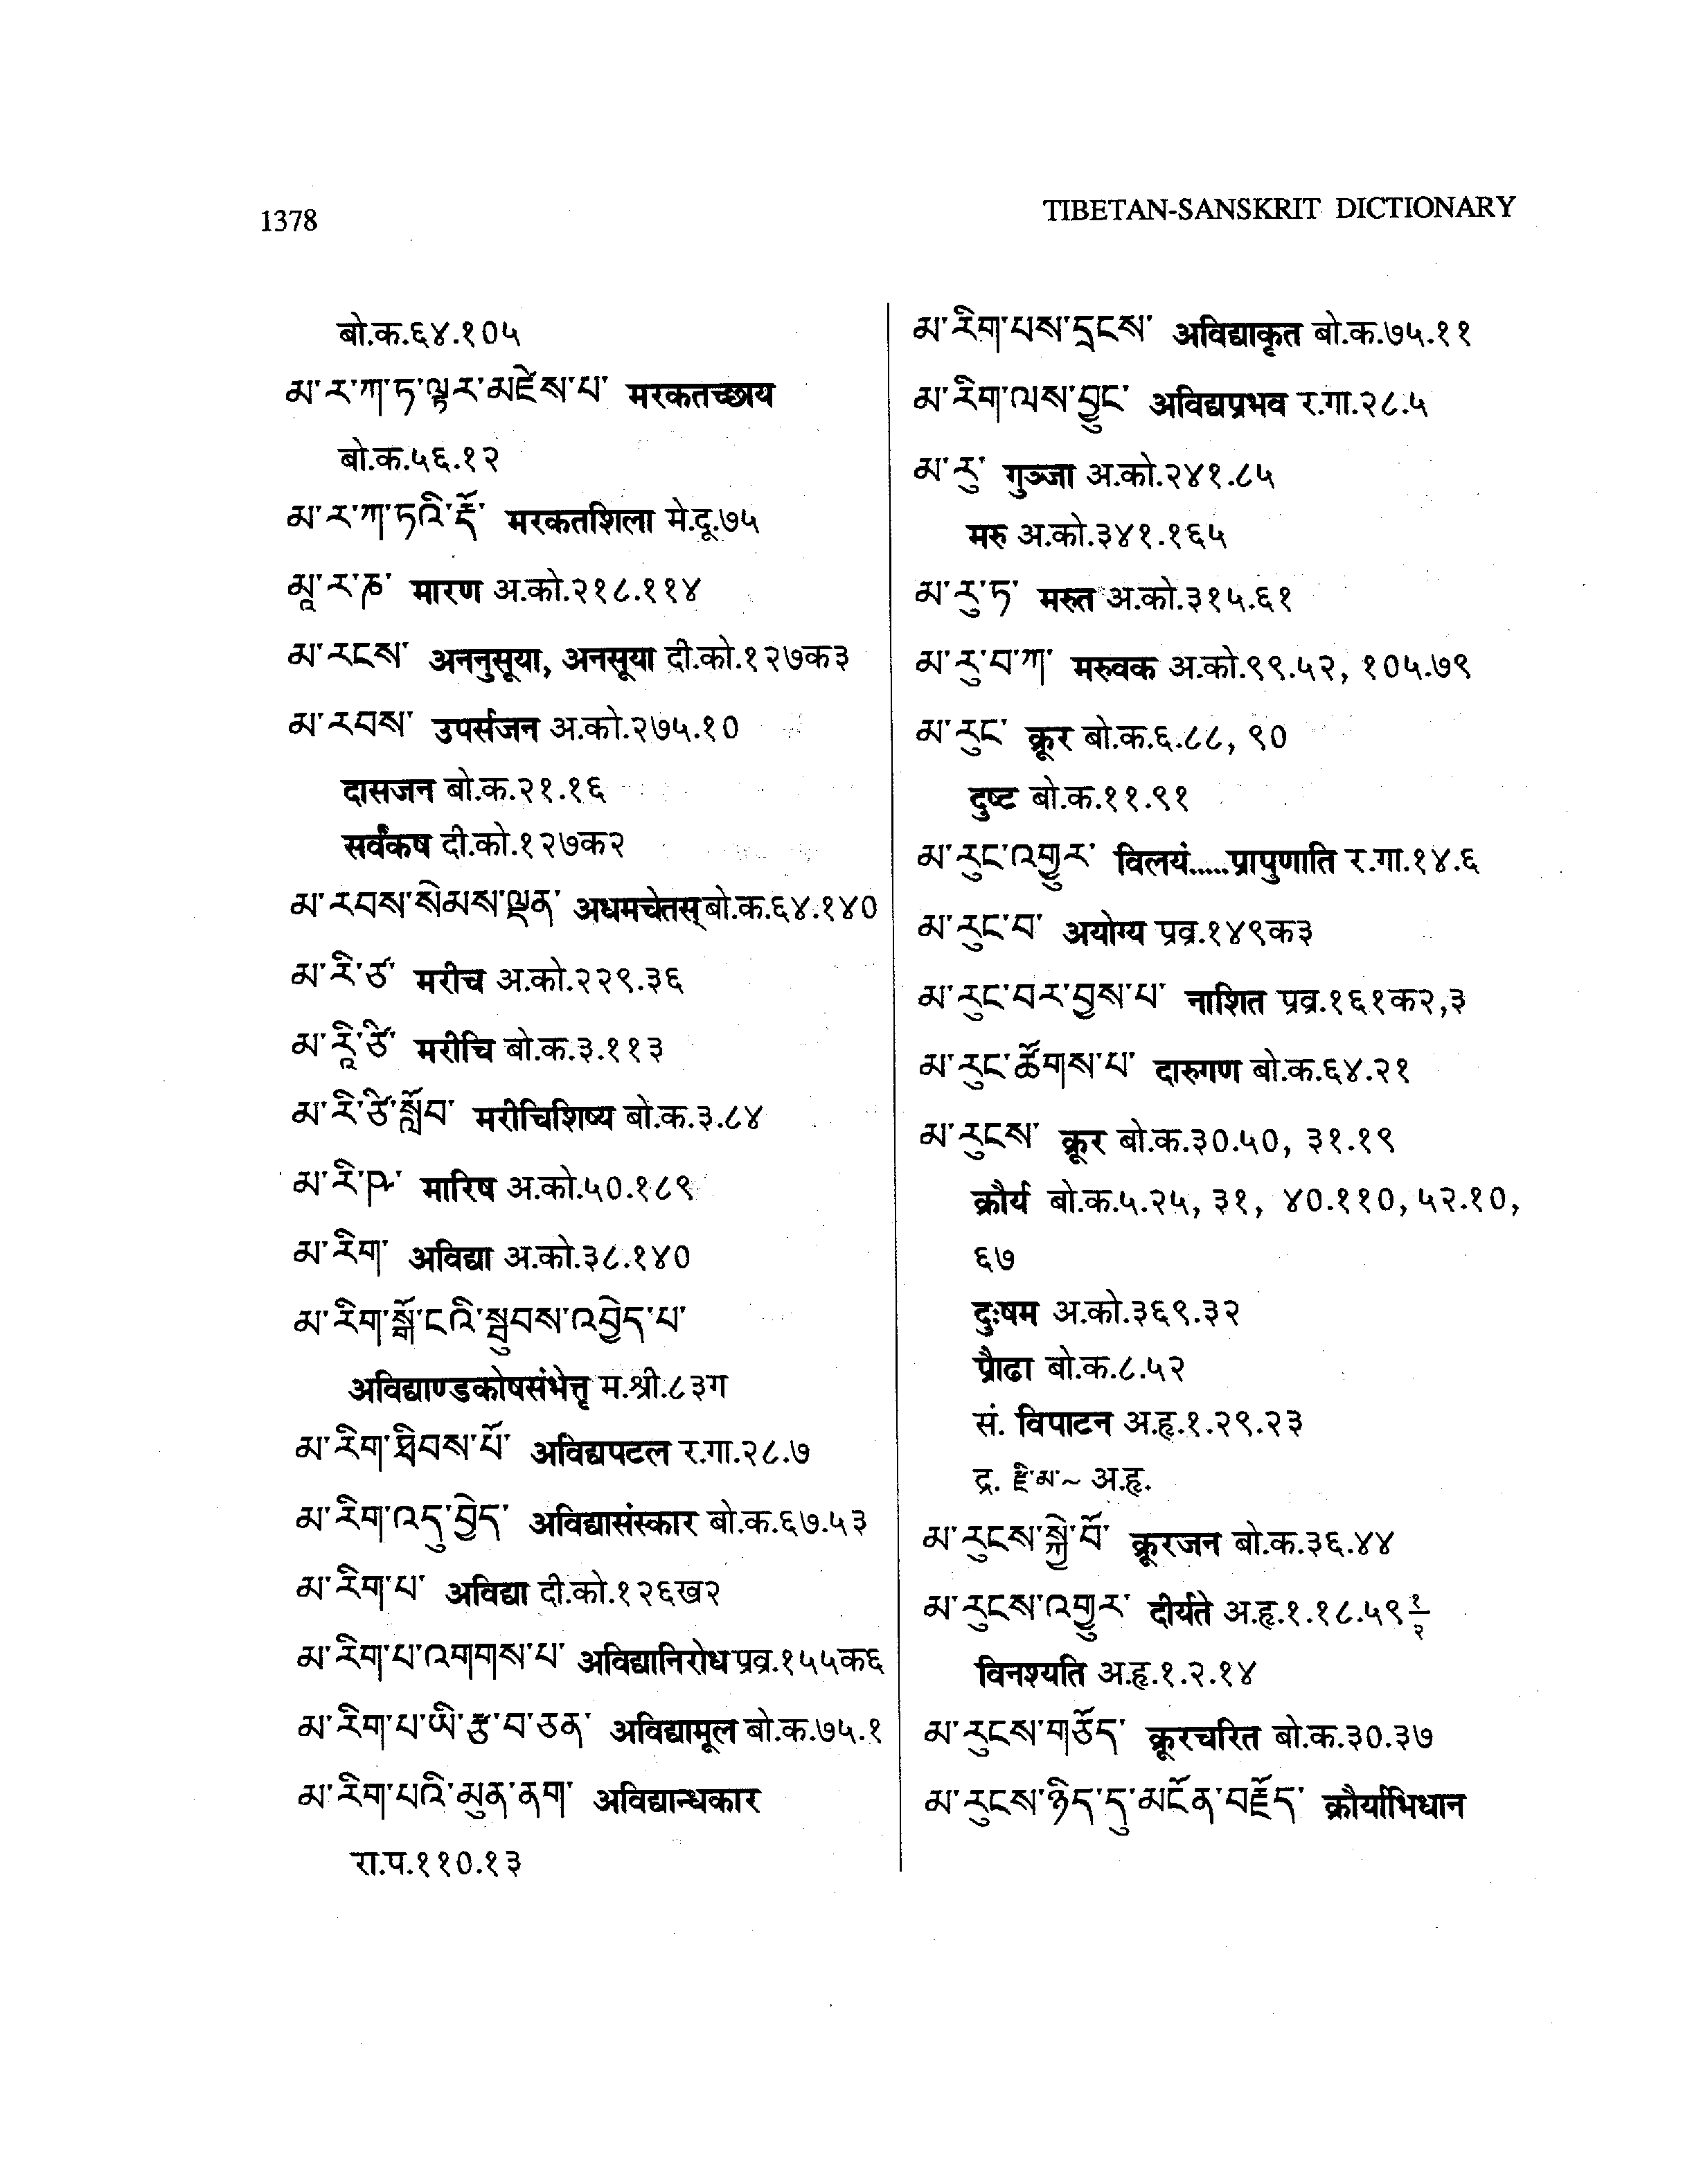 1378
TIBETAN-SANSKRIT DICTIONARY
बो.क.६४.१०५
མ་ར་ཀ་ཏ་ལྟར་མཛེས་པ་ मरकतच्छाय
बो.क.५६.१२
མ་ར་ཀ་ཏའི་རྡོ་ मरकतशिला मे.दू.७५
མཱ་ར་ཎ་ मारण अ.को.२१८.११४
མ་རངས་ अननुसूया, अनसूया दी.को.१२७क३
མ་རབས་ उपर्सजन अ.को.२७५.१०
दासजन बो.क.२१.१६
सर्वंकष दी.को.१२७क२
མ་རབས་སེམས་ལྡན་ अधमचेतस् बो.क.६४.१४०
མ་རི་ཙ་ मरीच अ.को.२२९.३६
མ་རཱི་ཙི་ मरीचि बो.क.३.११३
མ་རི་ཙི་སློབ་ मरीचिशिष्य बो.क.३.८४
མ་རི་ཥ་ मारिष अ.को.५०.१८९
མ་རིག་ अविद्या अ.को.३८.१४०
མ་རིག་སྒོ་ངའི་སྦུབས་འབྱེད་པ་
अविद्याण्डकोषसंभेत्तृ म.श्री.८३ग
མ་རིག་ཐིབས་པོ་ अविद्यपटल र.गा.२८.७
མ་རིག་འདུ་བྱེད་ अविद्यासंस्कार बो.क.६७.५३
མ་རིག་པ་ अविद्या दी.को.१२६ख२
མ་རིག་པ་འགགས་པ་ अविद्यानिरोध प्रव्र.१५५क६
མ་རིག་པ་ཡི་རྩ་བ་ཅན་ अविद्यामूल बो.क.७५.१
མ་རིག་པའི་མུན་ནག་ अविद्यान्धकार
रा.प.११०.१३
མ་རིག་པས་དྲངས་ अविद्याकृत बो.क.७५.११
མ་རིག་ལས་བྱུང་ अविद्यप्रभव र.गा.२८.५
མ་རུ་ गुञ्जा अ.को.२४१.८५
मरु अ.को.३४१.१६५
མ་རུ་ཏ་ मरुत अ.को.३१५.६१
མ་རུ་བ་ཀ་ मरुवक अ.को.९९.५२, १०५.७९
མ་རུང་ क्रूर बो.क.६.८८, ९०
दुष्ट बो.क.११.९१
མ་རུང་འགྱུར་ विलयं.....प्रापुणाति र.गा.१४.६
མ་རུང་བ་ अयोग्य प्रव्र.१४९क३
མ་རུང་བར་བྱས་པ་ नाशित प्रव्र.१६१क२,३
མ་རུང་ཚོགས་པ་ दारुगण बो.क.६४.२१
མ་རུངས་ क्रूर बो.क.३०.५०, ३१.१९
क्रौर्य बो.क.५.२५, ३१, ४०.११०, ५२.१०,
६७
दुःषम अ.को.३६९.३२
प्रौढा बो.क.८.५२
सं. विपाटन अ.हृ.१.२९.२३
द्र. རྫི་མ་~ अ.हृ.
མ་རུངས་སྐྱེ་བོ་ क्रूरजन बो.क.३६.४४
མ་རུངས་འགྱུར་ दीर्यते अ.हृ.१.१८.५९ १/२
विनश्यति अ.हृ.१.२.१४
མ་རུངས་གཅོད་ क्रूरचरित बो.क.३०.३७
མ་རུངས་ཉིད་དུ་མངོན་བརྗོད་ क्रौर्याभिधान